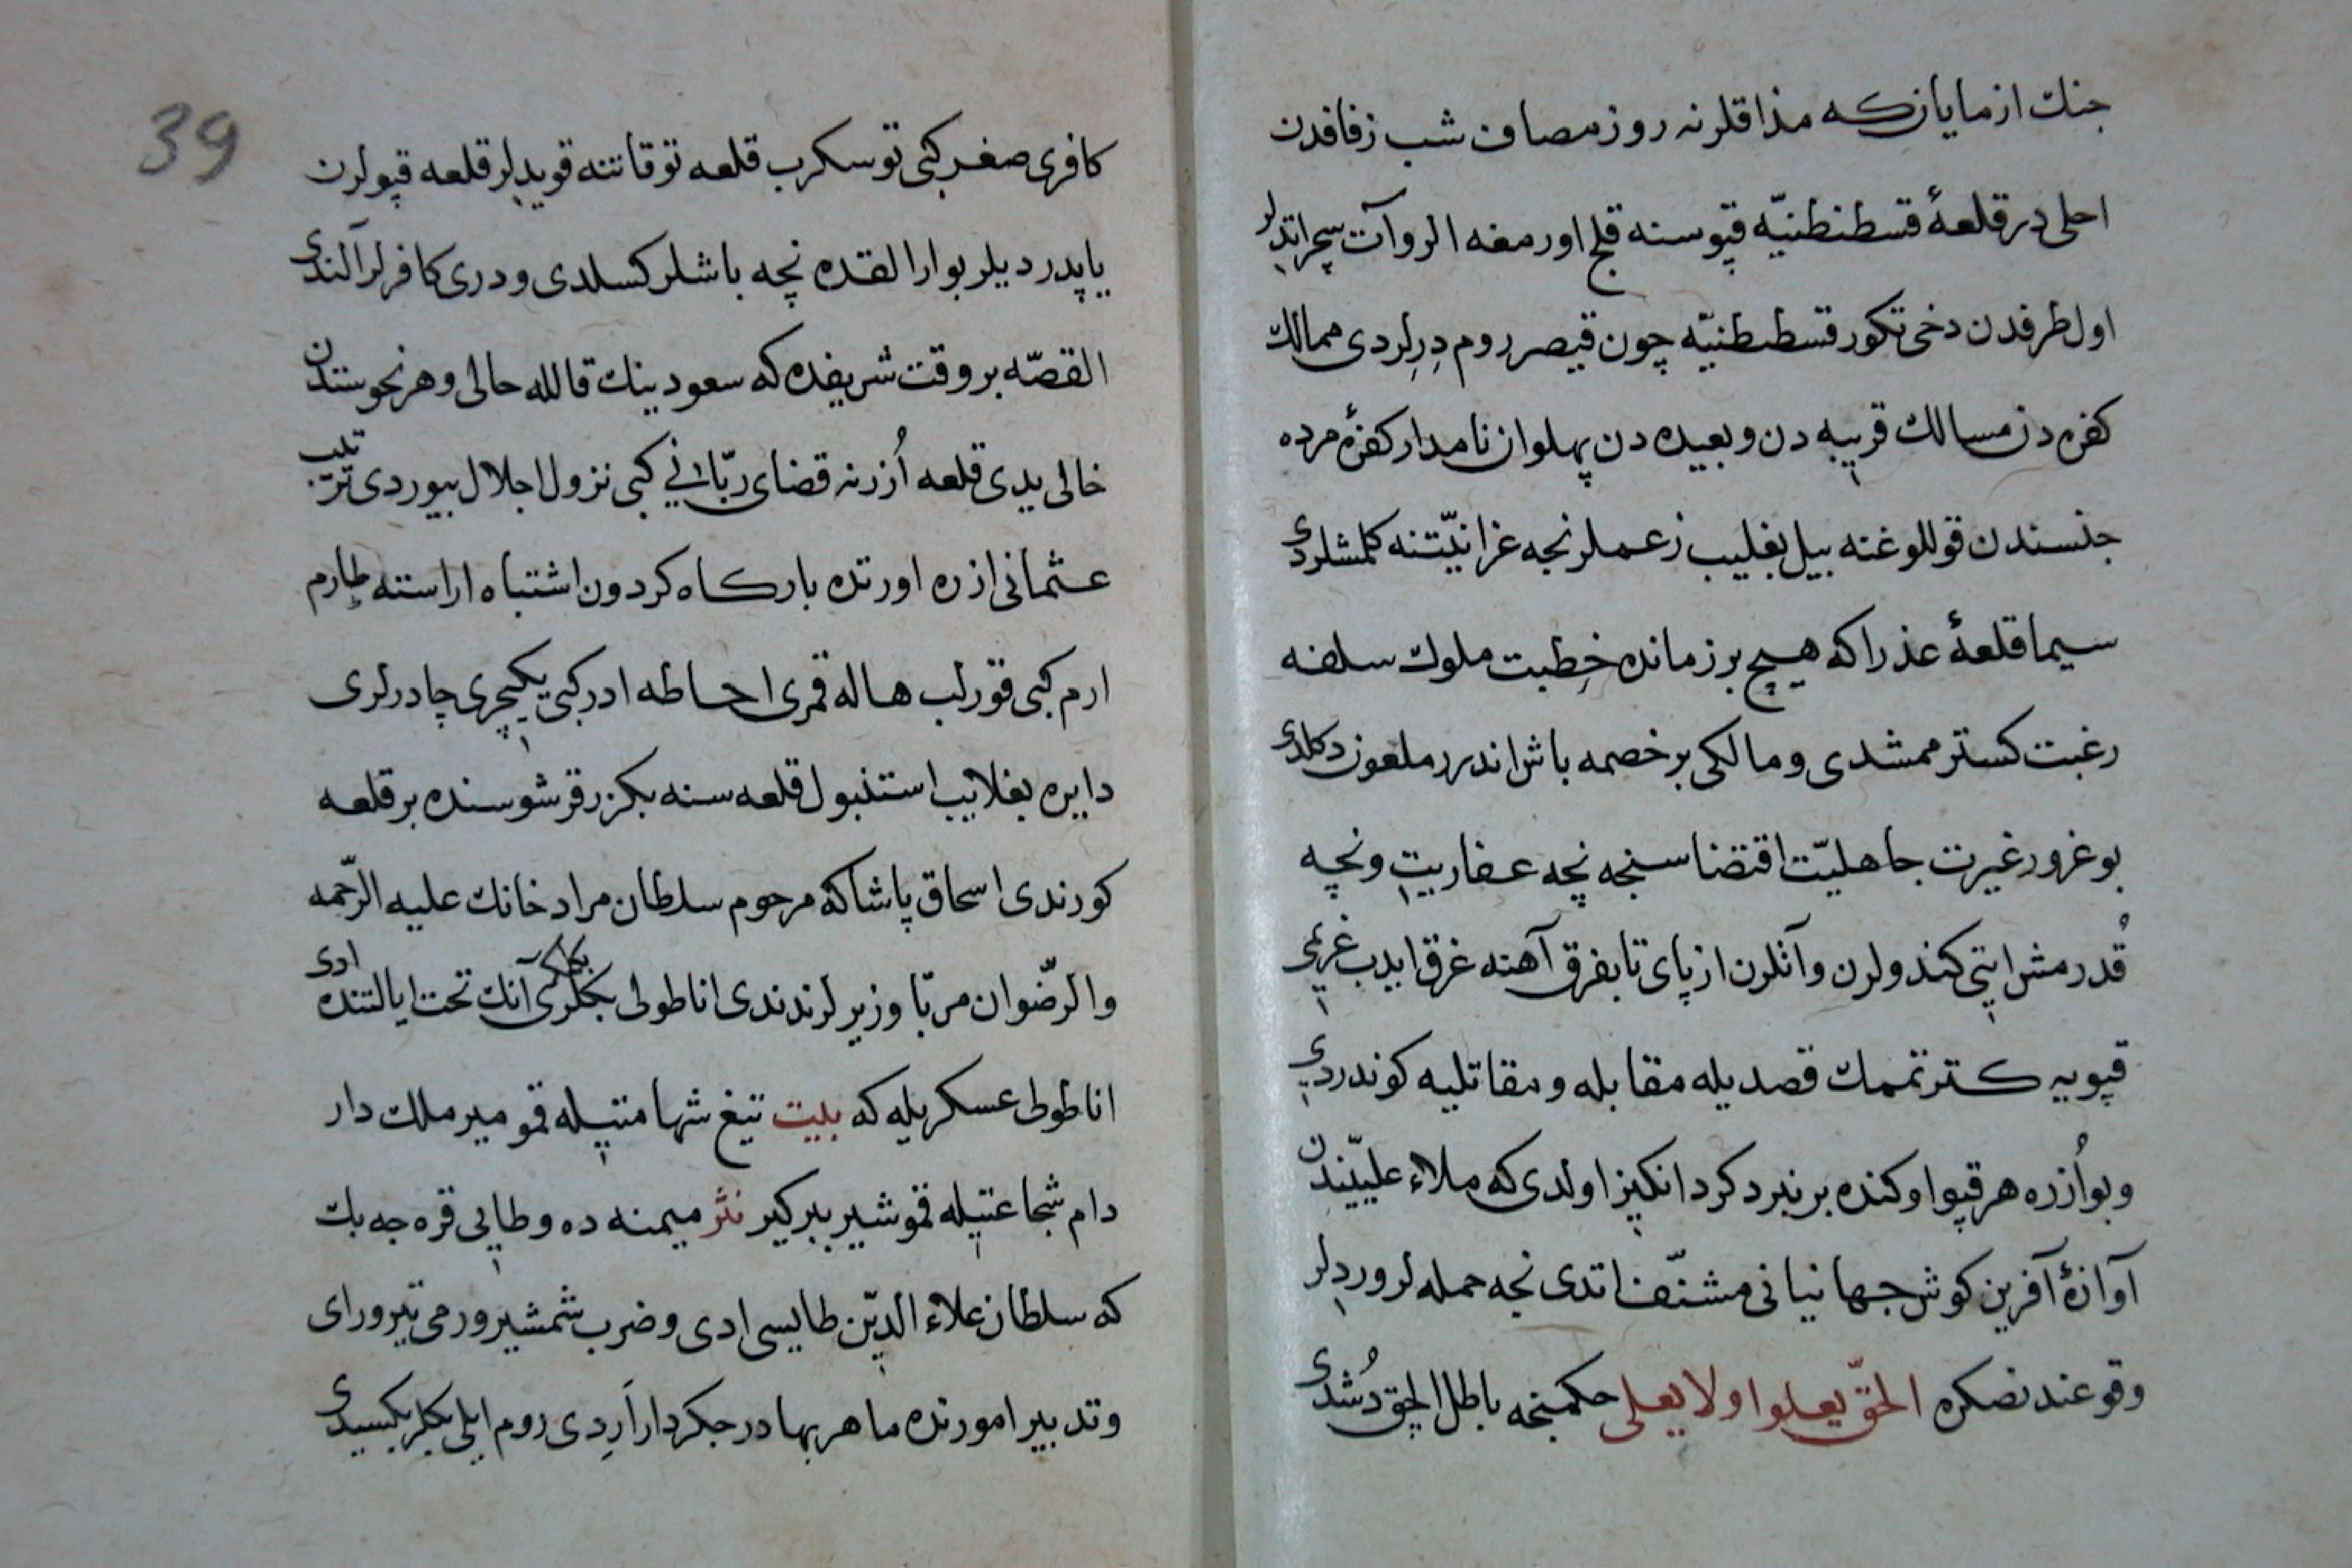 جنك ازمايانكه مذاقلرنه روز مصاف شب زفافدن
احلى در قلعهٔ قسطنطنيّه قپوسنه قلج اورمغه الر وآت سچراتديلر
اول طرفدن دخى تكور قسطنطنيّه چون قيصر روم دِرِلردى ممالك
كفره دن مسالك قريبه دن وبعيده دن پهلوان نامدار كفرهٔ مرده
جنسندن قوللوغنه بيل بغليب زعملرنجه غزا نيّتنه كلمشلردى
سيما قلعهٔ عذرا كه هيچ بر زمانده خِطبت ملوك سلفه
رغبت كسترممشدى ومالكى بر خصمه باش اندرر ملعون دكلدى
بو غرور غيرت جاهليّت اقتضاسنجه نچه عفاريت ونچه
قُدرمش ايتى كندولرن وآنلرن از پاى تا بفرق آهنه غرق ايدب غريمى
قپويه كترتممك قصديله مقابله ومقاتليه كوندردى
وبو اُزره هر قپو اوكنده بر نبرد كرد انكيز اولدى كه ملاء علييّندن
آوازهٔ آفرين كوش جهانيانى مشنّف اتدى نجه حمله لر ورديلر
وقوعندنصكره الحقّ يعلوا ولا يعلى حكمنجه باطل الچق دُشدى
كافرى صغر كبى توسكرب قلعه توقاتنه قويديلر قلعه قپولرن
ياپدرديلر بو ارالقده نچه باشلر كسلدى ودرى كافرلر آلندى
القصّه بر وقت شريفده كه سعودينك قالله حالى وهر نحوستدن
خالى يدى قلعه اُزرنه قضاى ربّانى كبى نزول اجلال بيوردى ترتيب
عثمانى ازره اورتده باركاه كردون اشتباه اراسته طارم
ارم كبى قورلب هاله قمرى احاطه ادر كبى يكيچرى چادرلرى
دايره بغلايب استنبول قلعه سنه بكزر قرشوسنده بر قلعه
كورندى اسحاق پاشا كه مرحوم سلطان مراد خانك عليه الرّحمه
والرّضوان مربّا وزيرلرندندى اناطولى بكلربكى آنك تحت ايالتنده ادى
اناطولى عسكريله كه بليت تيغ شهامتيله قمو مير ملك دار
دام شجاعتيله قمو شير ببر كير نثر ميمنه ده وطاپى قره جه بك
كه سلطان علاء الدّين طاپسى ادى وضرب شمشير ورمى تير وراى
وتدبير امورنده ماهر بهادر جكردار اَرِدى روم ايلى بكلربكيسيدى
39